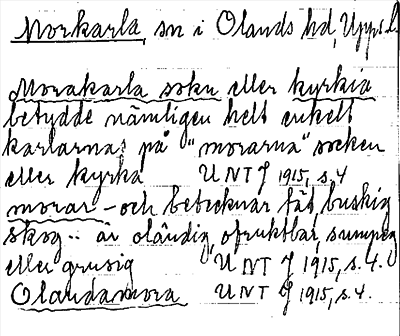 Morkarla, sn i Olands hd, Upps.l.
Morakarla sokn eller kyrkia
betydde nämligen helt enkelt
karlarnas på "morarna" socken
eller kyrka UNT J 1915, s. 4
morar - och betecknar tät buskig
skog .. är oländig, ofruktbar, sumpig
eller grusig UNT J 1915, s. 4.
Olandamora UNT J 1915, s. 4.